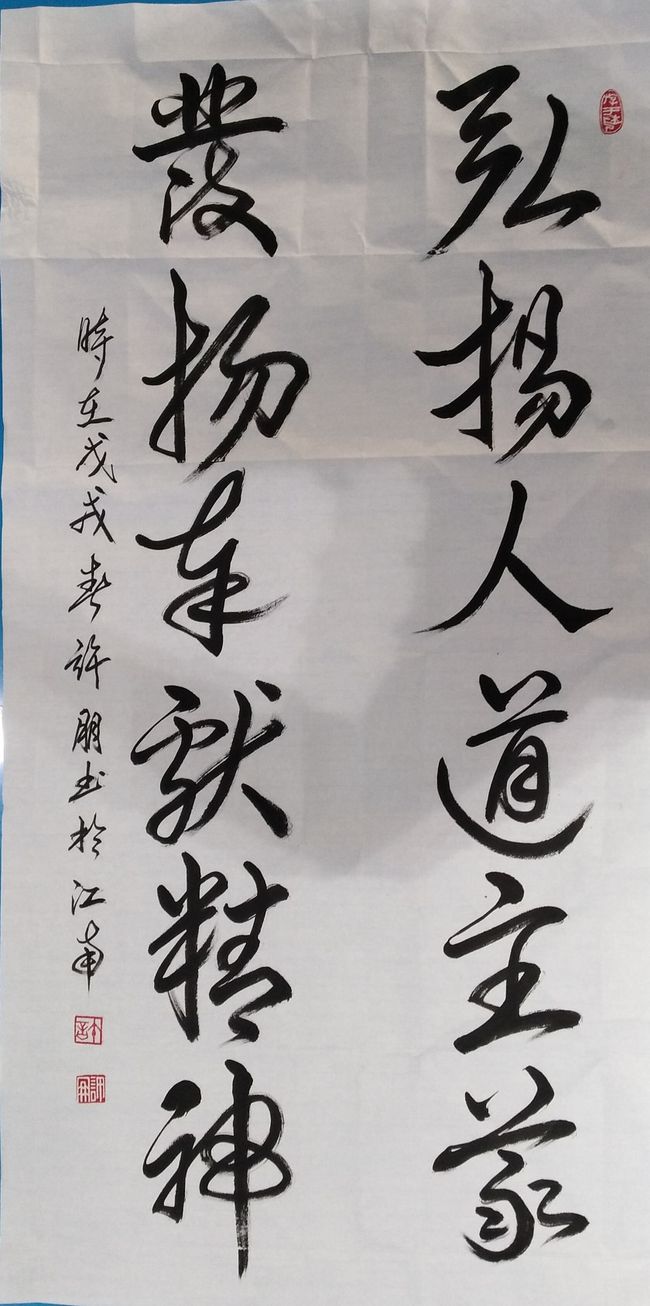 弘揚人道主義
發扬奉献精神
時在戊戌春许朋书於江南